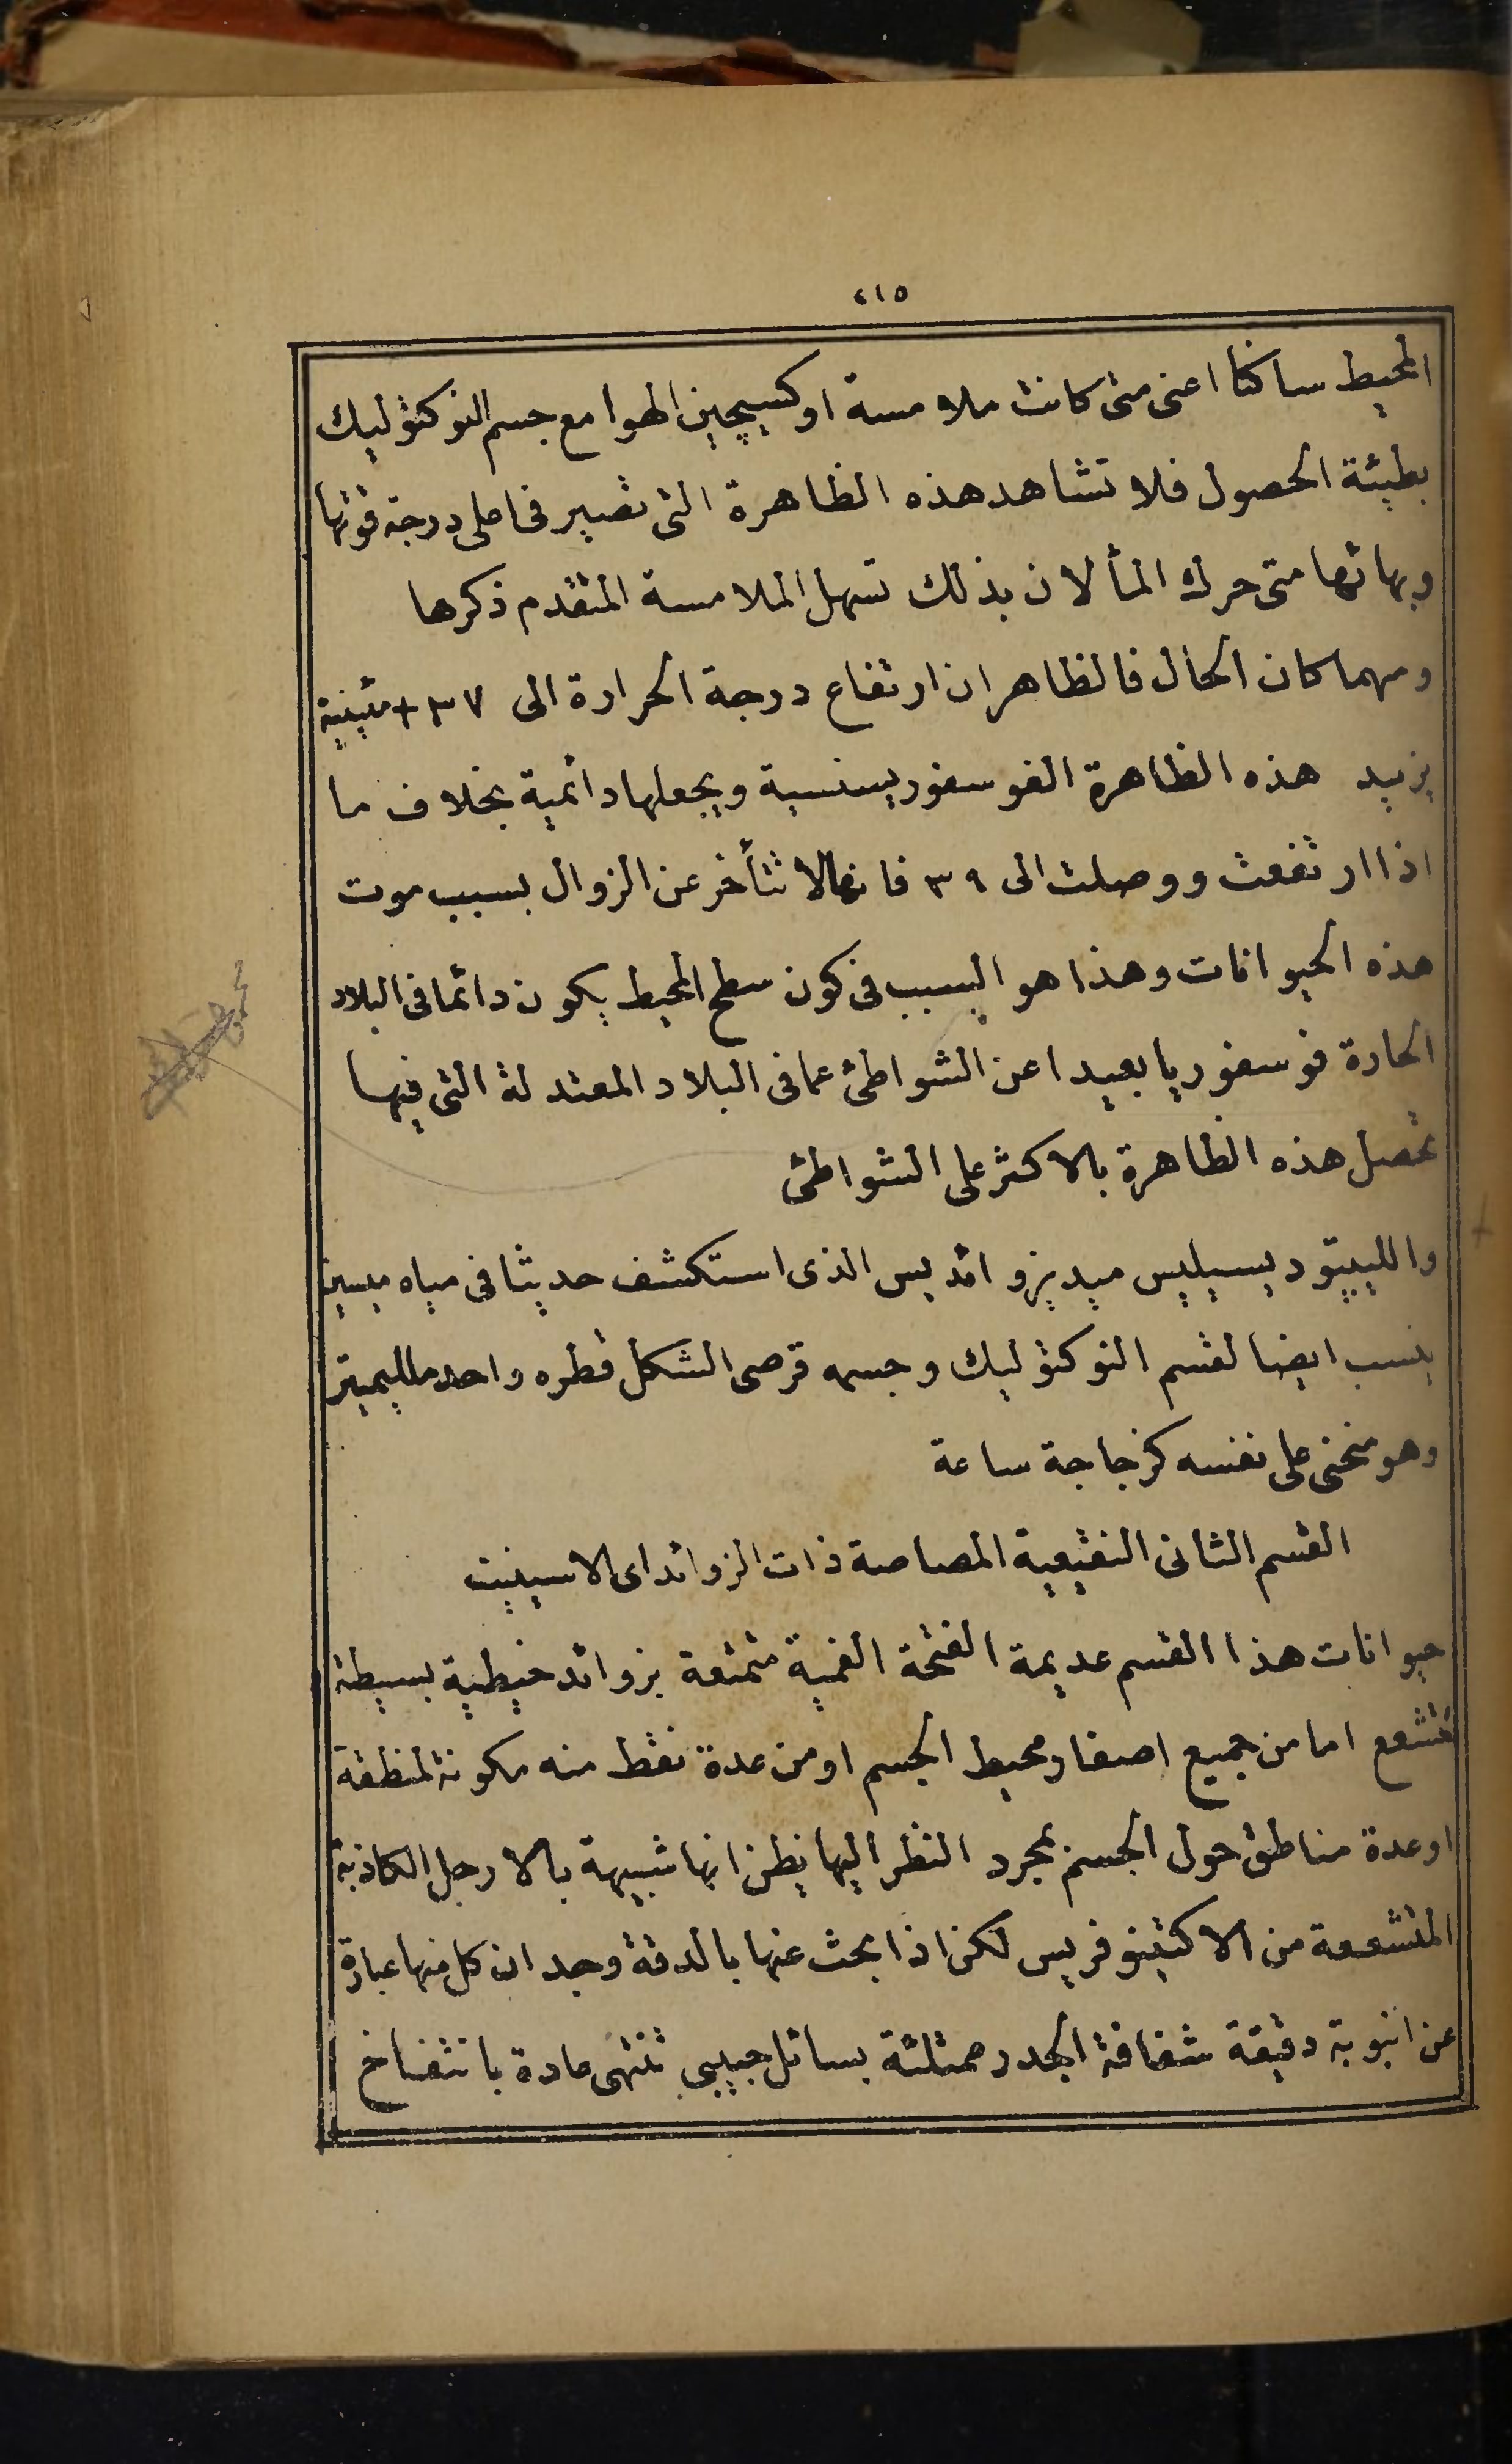 ٤١٥
المحيط ساكنا اعنى متى كانت ملامسة اوكسيچين الهوا مع جسم النوكتوليك
بطيئة الحصول فلا تشاهد هذه الظاهرة التى تصير فى اعلى درجة قوتها
وبهائها متى حرك المأ لان بذلك تسهل الملامسة المتقدم ذكرها
ومهما كان الحال فالظاهر ان ارتفاع درجة الحرارة الى ٣٧ + مئينية
يزيد هذه الظاهرة الفوسفوريسنسية ويجعلها دائمية بخلاف ما
اذا ارتفعت ووصلت الى ٣٩ فانها لا تتأخر عن الزوال بسبب موت
هذه الحيوانات وهذا هو السبب فى كون سطح المحيط يكون دائما فى البلاد
الحارة فوسفوريا بعيدا عن الشواطئ عما فى البلاد المعتدلة التى فيها
تحصل هذه الظاهرة بالاكثر على الشواطئ
والليپتوديسيليس ميديزوائديس الذى استكشف حديثا فى مياه ميسين
ينسب ايضا لقسم النوكتوليك وجسمه قرصى الشكل قطره واحد ملليميتر
وهو منحنى على نفسه كزجاجة ساعة
القسم الثانى النقيعية المصاصة ذات الزوائد اى الاسينيت
حيوانات هذا القسم عديمة الفتحة الفمية متمتعة بزوائد خيطية بسيطة
تتشعع اما من جميع اصفار محيط الجسم او من عدة نقط منه مكونة لمنطقة
او عدة مناطق حول الجسم بمجرد النظر اليها يظن انها شبيهة بالارجل الكاذبة
المتشععة من الاكتينوفريس لكن اذا بحث عنها بالدقة وجد ان كل منها عبارة
عن انبوبة دقيقة شفافة الجدر ممتلئة بسائل حبيبى تنتهى عادة بانتفاخ